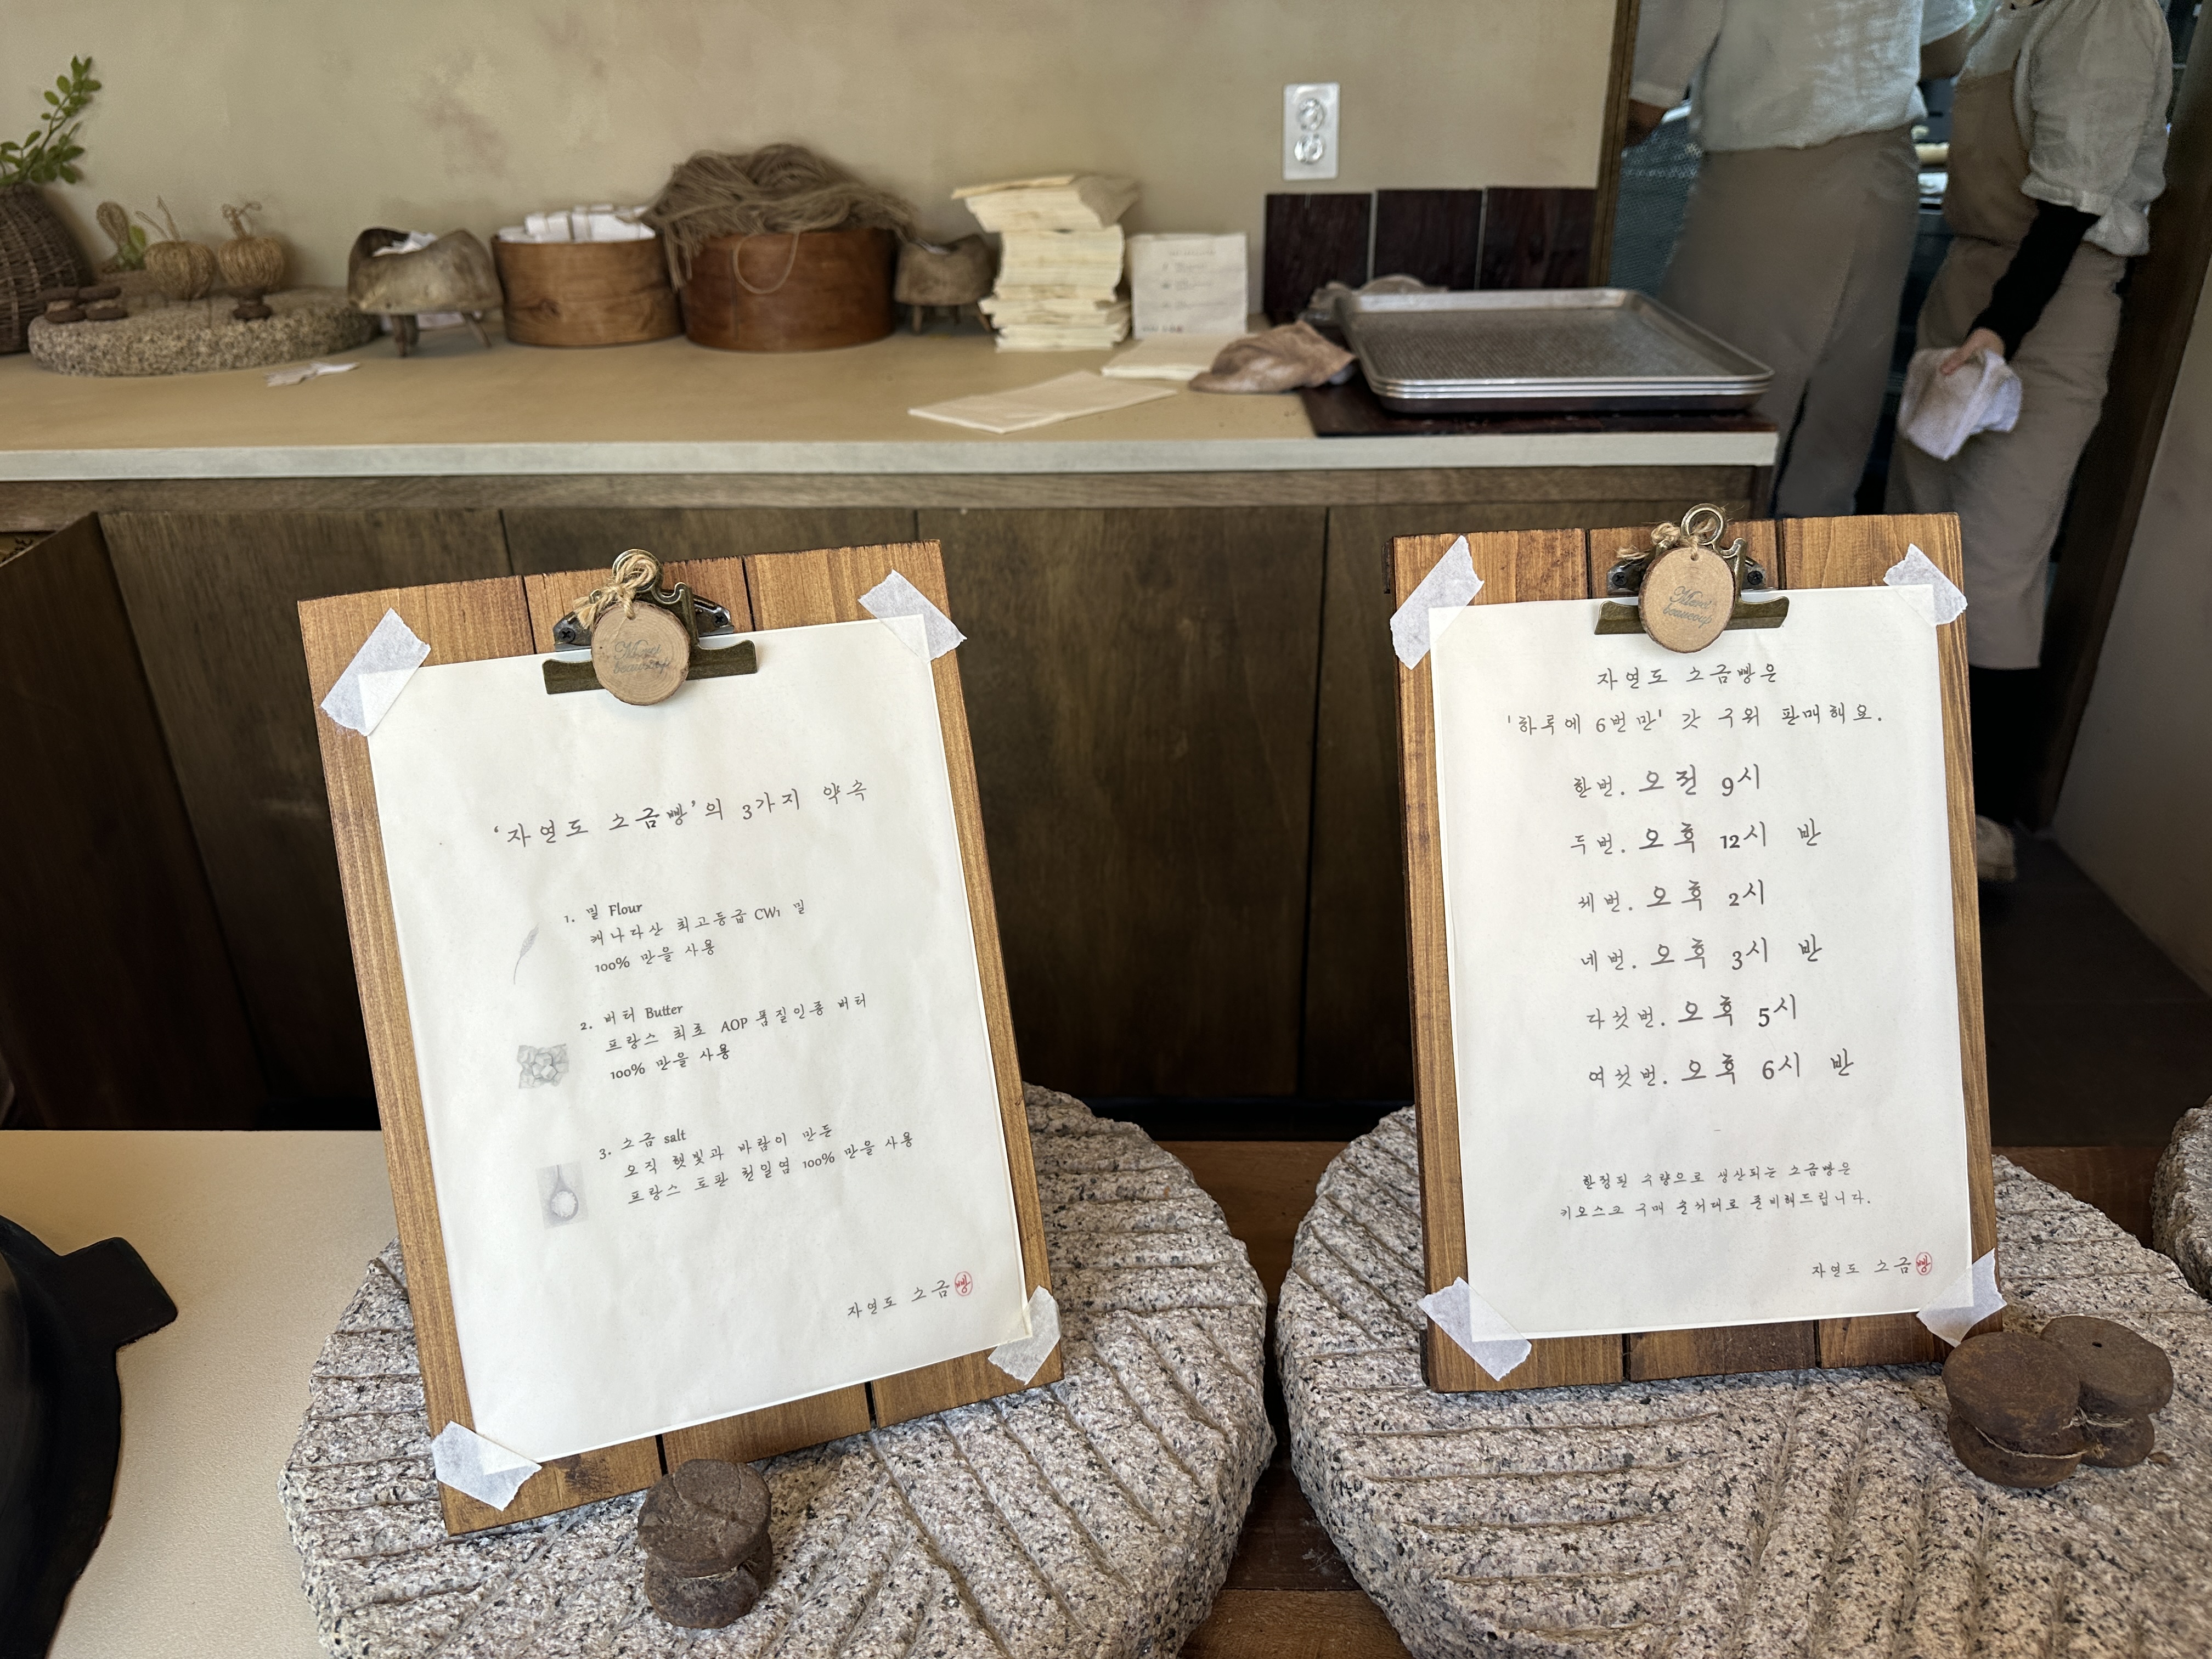 Merci
beaucoup
'자연도 소금빵'의 3가지 약속
1. 밀 Flour
캐나다산 최고등급 CW1 밀
100% 만을 사용
2. 버터 Butter
프랑스 최초 AOP 품질인증 버터
100% 만을 사용
3. 소금 salt
오직 햇빛과 바람이 만든
프랑스 토판 천일염 100% 만을 사용
자연도 소금빵
Merci
beaucoup
자연도 소금빵은
'하루에 6번만' 갓 구워 판매해요.
한번. 오전 9시
두번. 오후 12시 반
세번. 오후 2시
네번. 오후 3시 반
다섯번. 오후 5시
여섯번. 오후 6시 반
한정된 수량으로 생산되는 소금빵은
키오스크 구매 순서대로 준비해드립니다.
자연도 소금빵